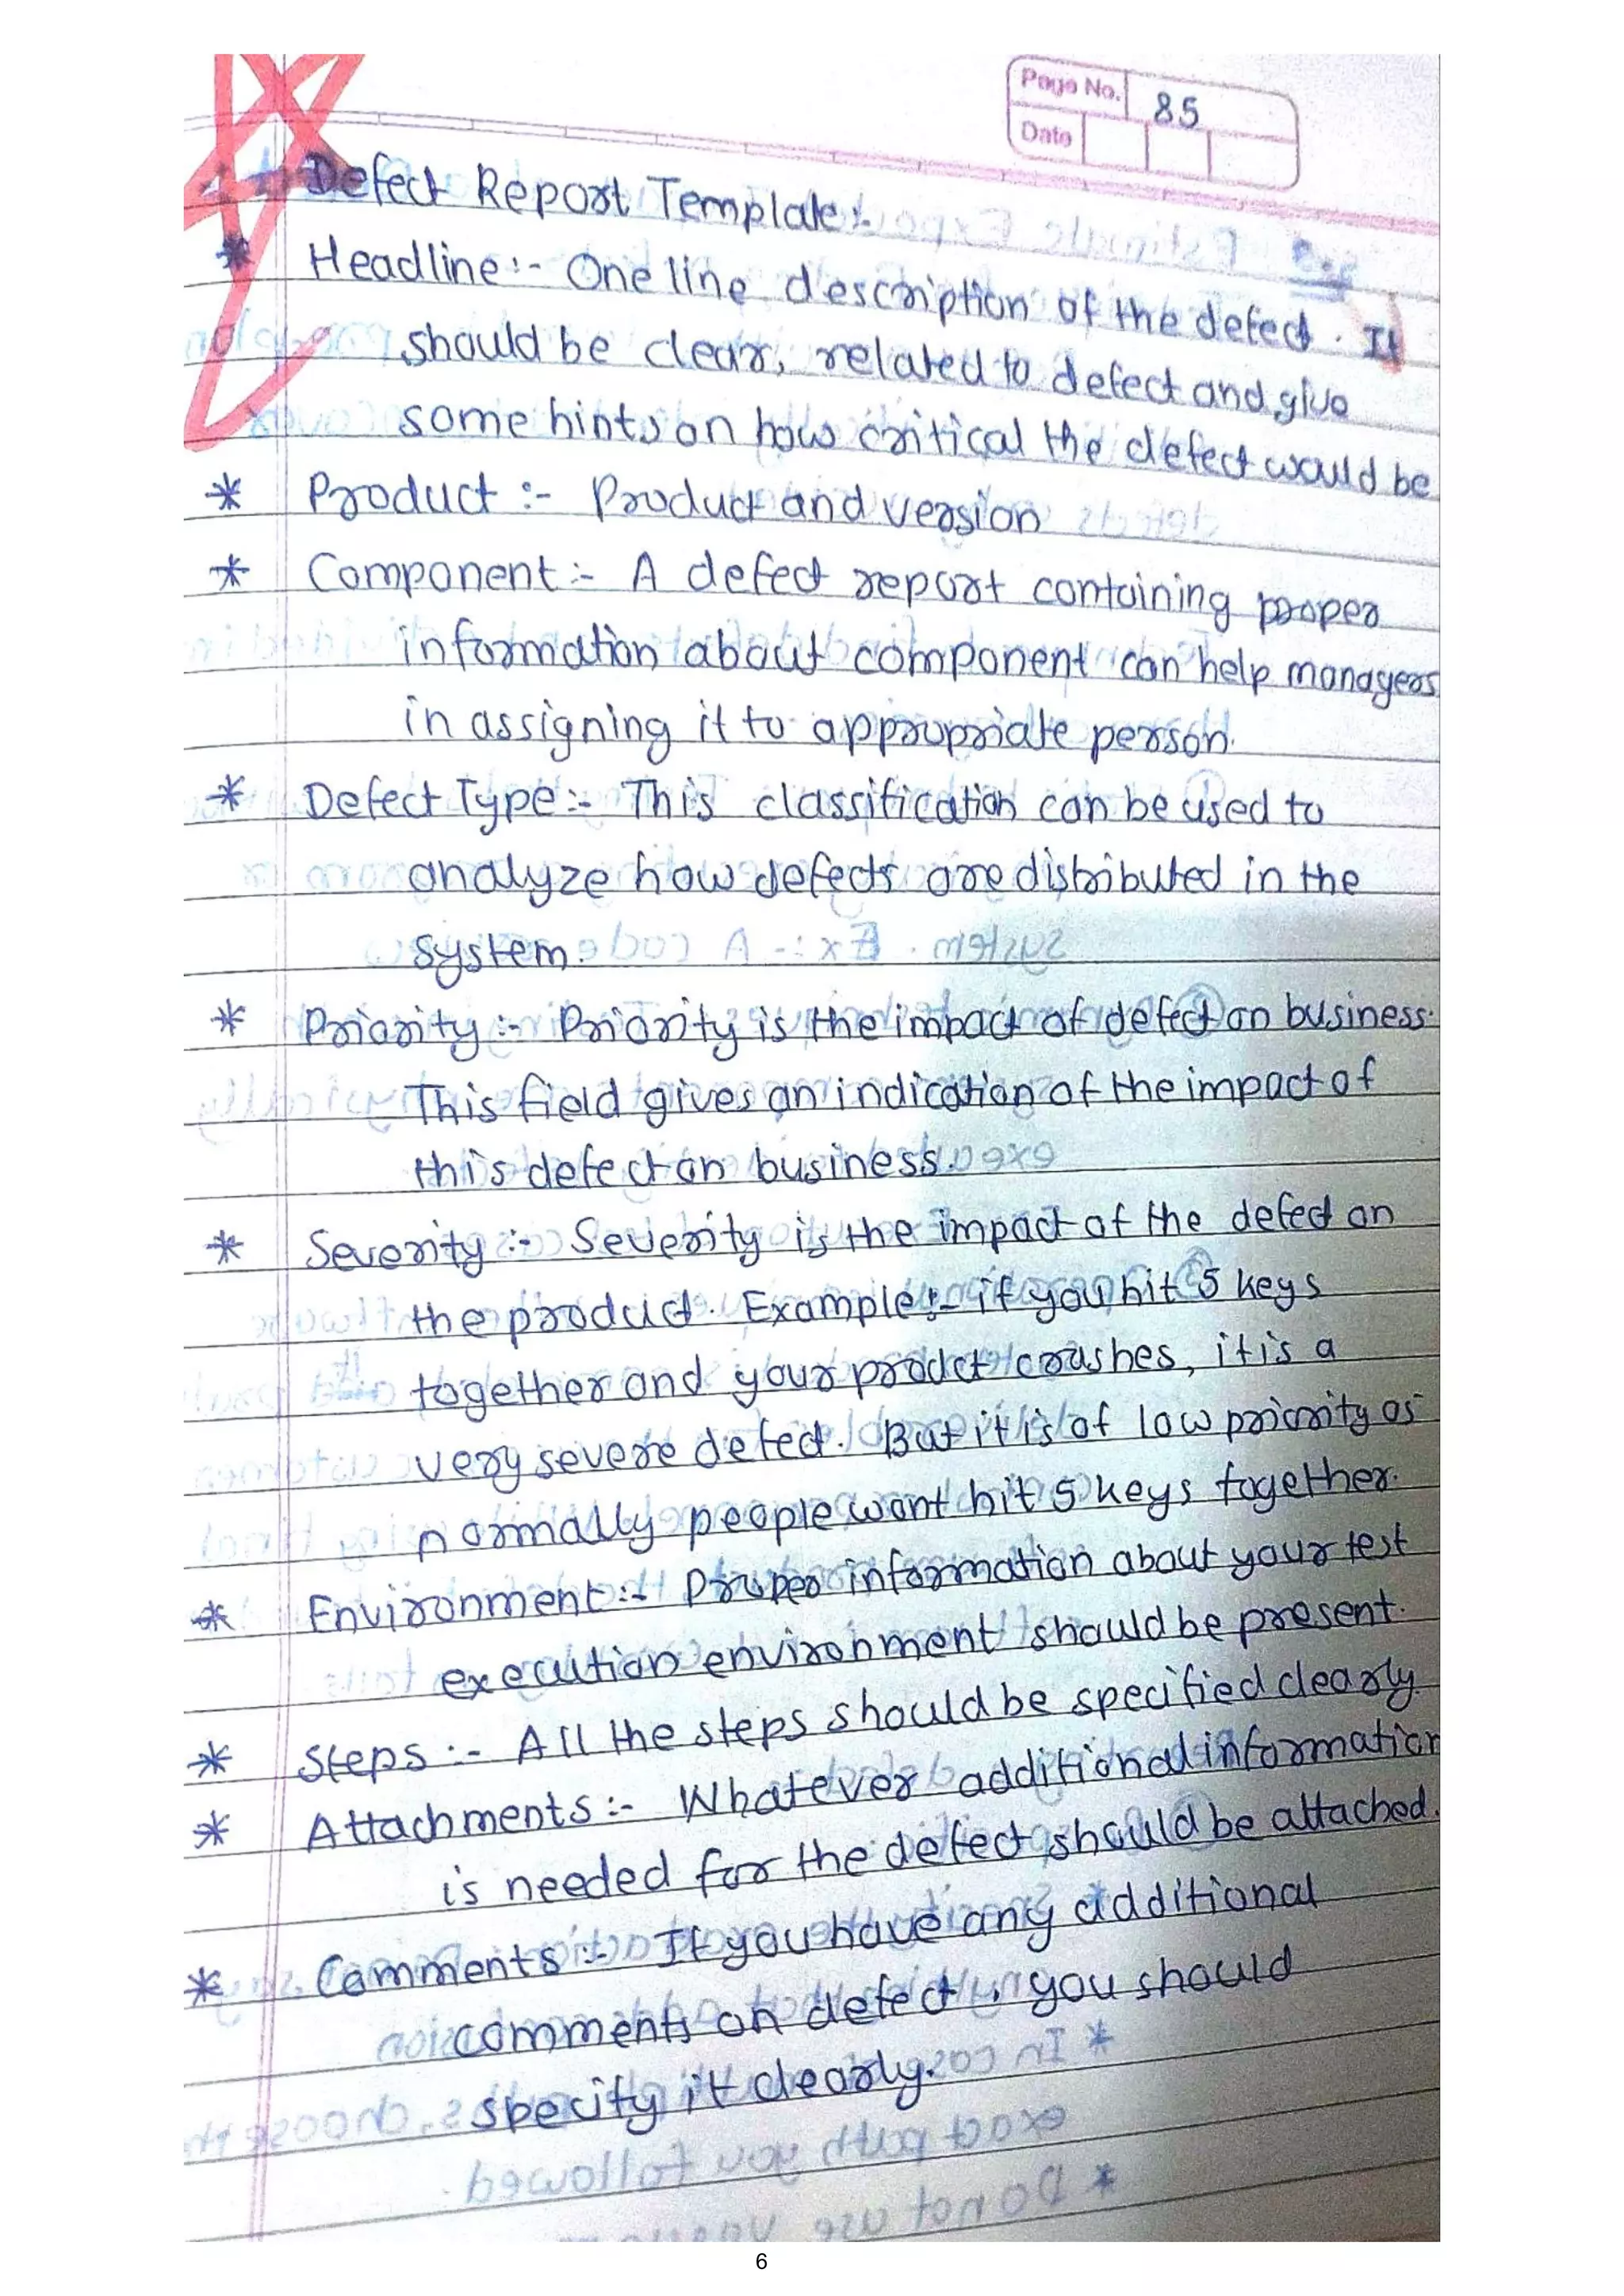 Page No. 85
Date
Defect Report Template:-
* Headline:- One line description of the defect. It
should be clear, related to defect and give
some hints on how critical the defect would be
* Product :- Product and version
* Component :- A defect report containing proper
information about component can help managers
in assigning it to appropriate person.
* Defect Type :- This classification can be used to
analyze how defects are distributed in the
system.
* Priority :- Priority is the impact of defect on business.
This field gives an indication of the impact of
this defect on business.
* Severity :- Severity is the impact of the defect on
the product. Example:- if you hit 5 keys
together and your product crashes, it is a
very severe defect. But it is of low priority as
normally people wont hit 5 keys together.
* Environment:- Proper information about your test
execution environment should be present.
* Steps :- All the steps should be specified clearly.
* Attachments :- Whatever additional information
is needed for the defect should be attached.
* Comments :- If you have any additional
comments on defect, you should
specify it clearly.
6